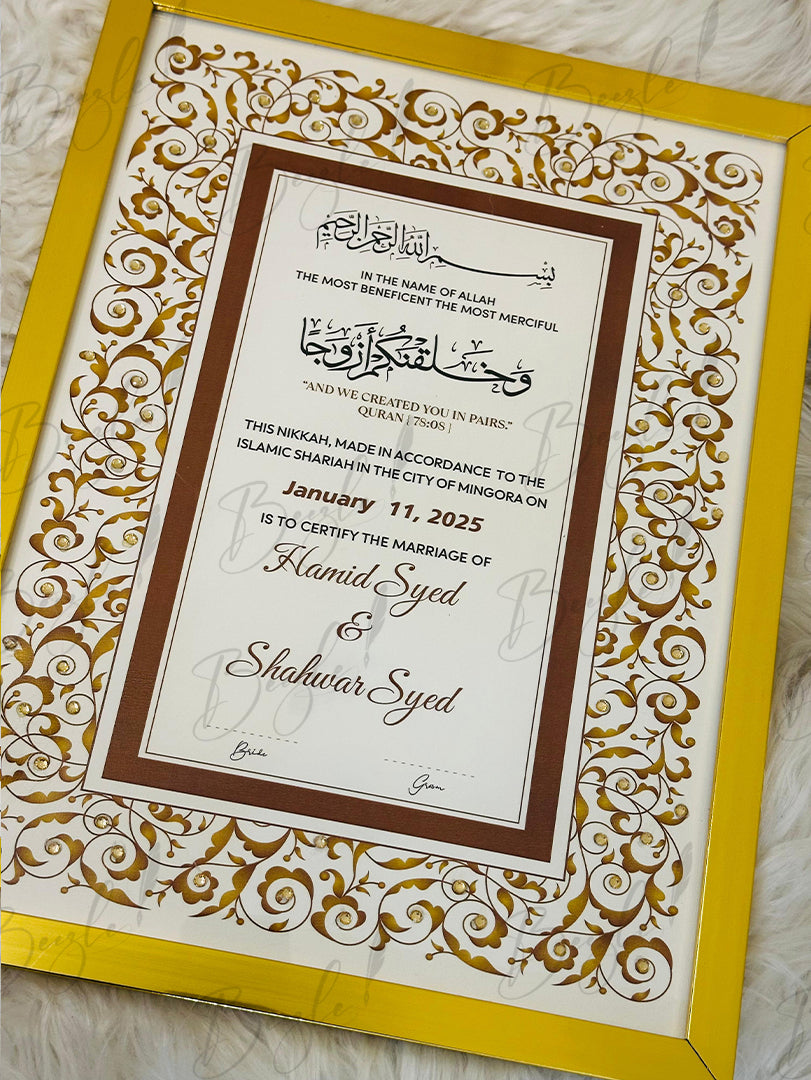 بِسْمِ اللَّهِ الرَّحْمَٰنِ الرَّحِيمِ
IN THE NAME OF ALLAH
THE MOST BENEFICENT THE MOST MERCIFUL
وَخَلَقْنَٰكُمْ أَزْوَٰجًا
"AND WE CREATED YOU IN PAIRS."
QURAN [ 78:08 ]
THIS NIKKAH, MADE IN ACCORDANCE TO THE
ISLAMIC SHARIAH IN THE CITY OF MINGORA ON
January 11, 2025
IS TO CERTIFY THE MARRIAGE OF
Hamid Syed
&
Shahwar Syed
Bride
Groom